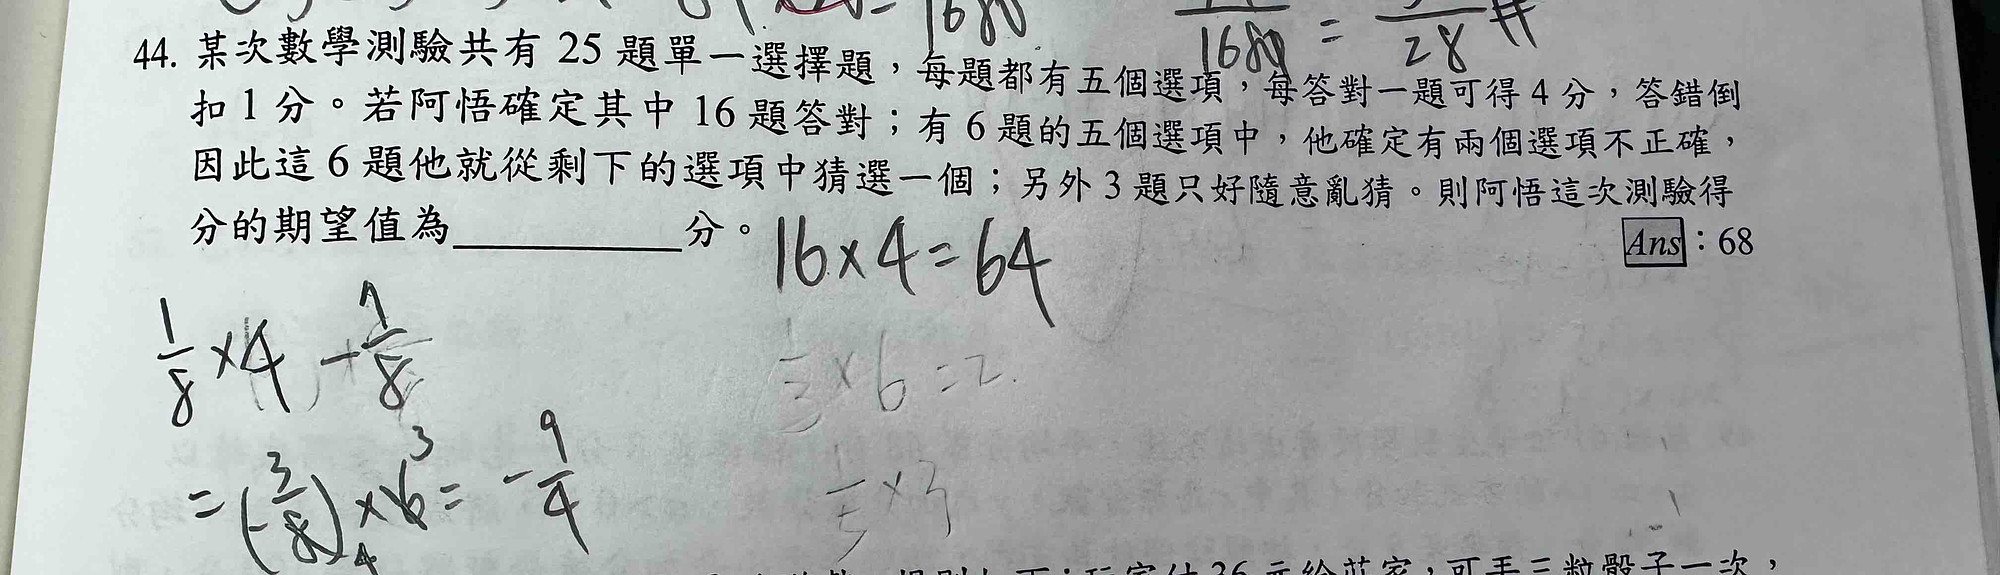 1680
1680 = 28 #
44. 某次數學測驗共有 25 題單一選擇題，每題都有五個選項，每答對一題可得 4 分，答錯倒
扣 1 分。若阿悟確定其中 16 題答對；有 6 題的五個選項中，他確定有兩個選項不正確，
因此這 6 題他就從剩下的選項中猜選一個；另外 3 題只好隨意亂猜。則阿悟這次測驗得
分的期望值為____________分。
Ans：68
16×4=64
1/8 ×4 - 7/8
1/3 ×6 =2
= (-3/8) ×6 = -9/4
3
4
1/5 ×3